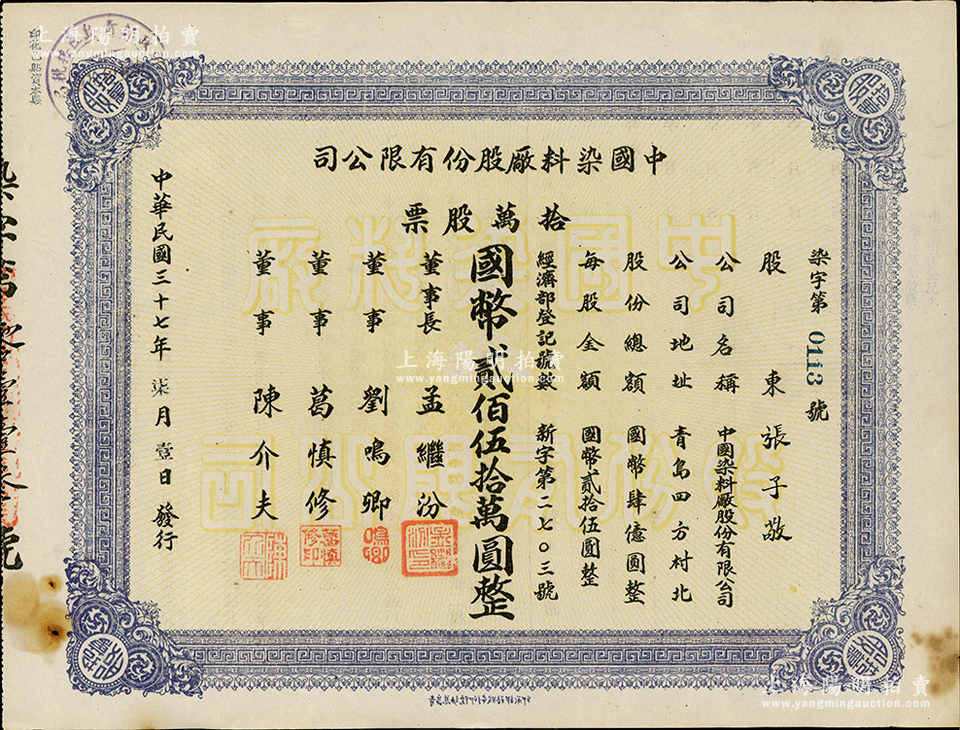 中國染料廠股份有限公司
拾萬股票
染字第 0113 號
股東 張子敬
公司名稱 中國染料廠股份有限公司
公司地址 青島四方村北
股份總額 國幣肆億圓整
每股金額 國幣貳拾伍圓整
經濟部登記號數 新字第二七〇三號
國幣貳佰伍拾萬圓整
董事長 孟繼汾
董事 劉鳴卿
董事 葛慎修
董事 陳介夫
中華民國三十七年 柒月 壹日 發行
中國染料廠
股份有限公司
上海陽明拍賣
www.yangmingauction.com
上海陽明拍賣
www.yangmingauction.com
上海陽明拍賣
www.yangmingauction.com